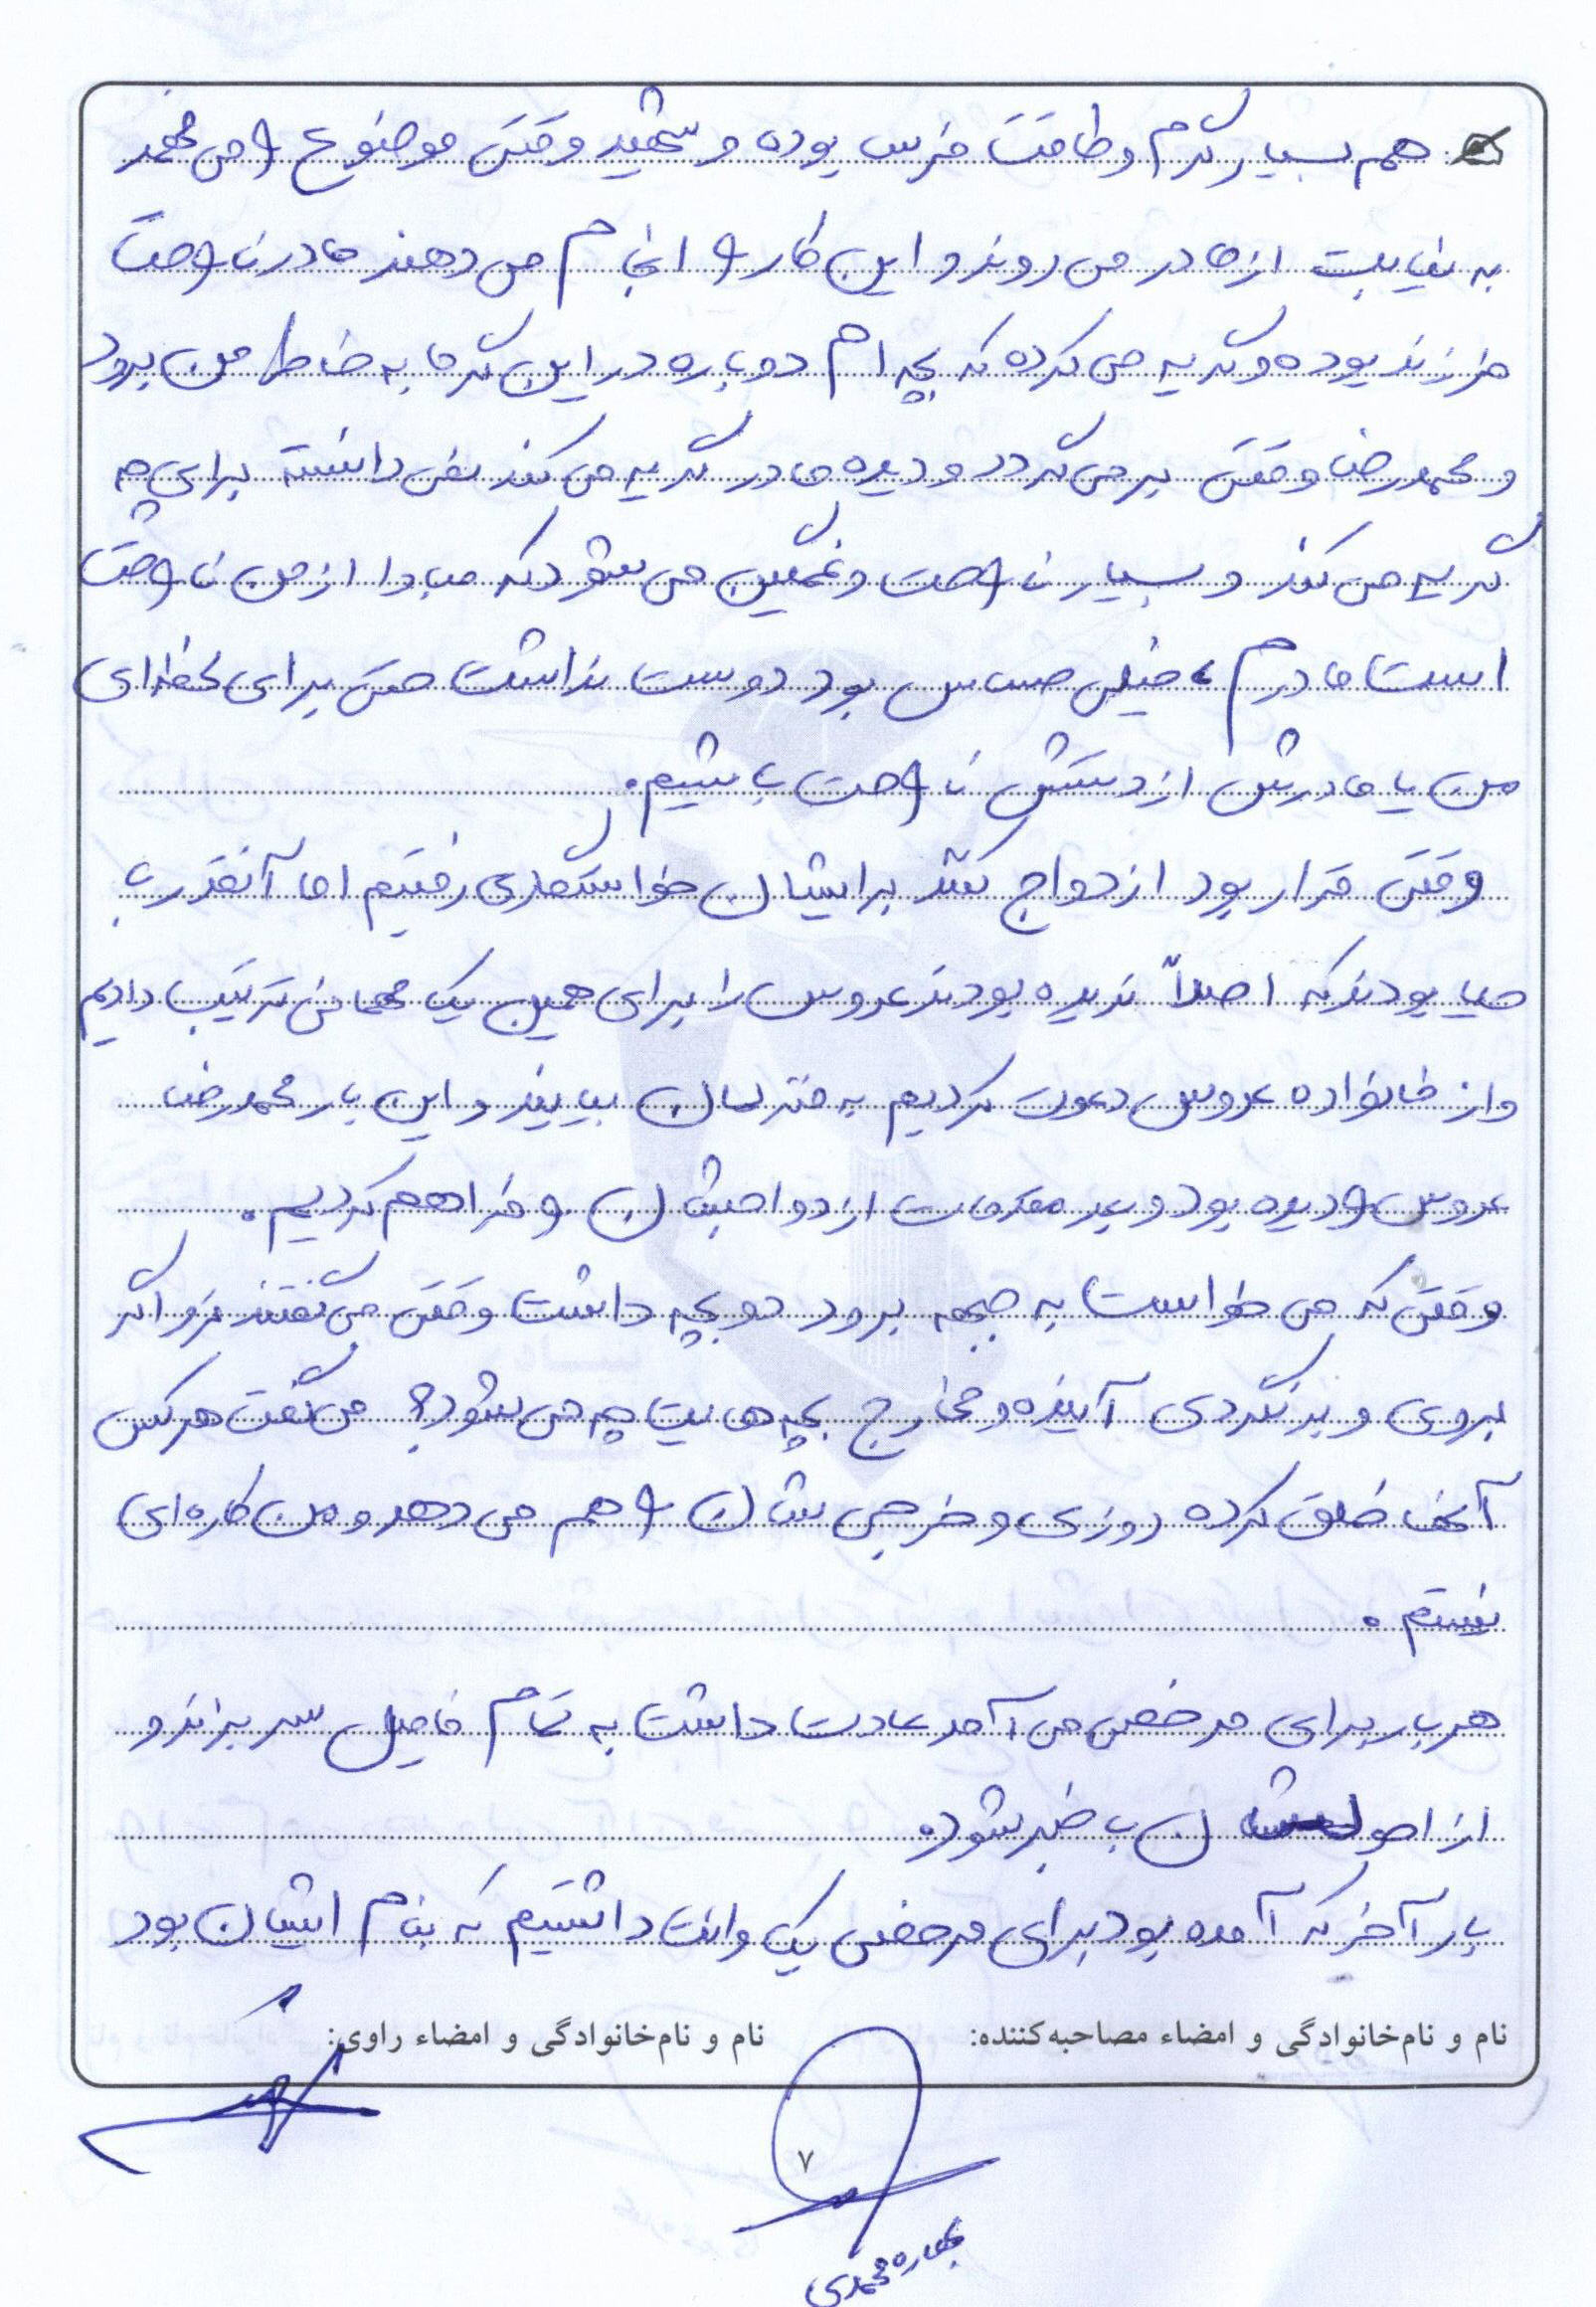 هم بسیار گرم و طاقت فرس بوده و شهید وقتی موضوع را می فهمد
به نیابت از مادر می روند و این کار را انجام می دهند مادر ناراحت
فرزند بوده و گریه می کرده که بچه ام دوباره در این گرما به خاطر من برود
و محمدرضا وقتی بر می گردد و دیده مادر گریه می کند نمی دانسته برای چه
گریه می کند و بسیار ناراحت و غمگین می شود که مبادا از من ناراحت
است مادرم، خیلی حساس بود دوست نداشت حتی برای لحظه ای
من یا مادرش از دستش ناراحت باشیم.
وقتی قرار بود ازدواج کند برایشان خواستگاری رفتیم اما آنقدر با
حیا بودند که اصلاً ندیده بودند عروس را برای همین یک مهمانی ترتیب دادیم
و از خانواده عروس دعوت کردیم به منزلمان بیایند و این بار محمدرضا
عروس را دیده بود و بعد مقدمات ازدواجشان را فراهم کردیم.
وقتی که می خواست به جبهه برود دو بچه داشت وقتی می گفتند نرو اگر
بروی و برنگردی آینده و مخارج بچه هایت چه می شود؟ می گفت هر کس
آنها خلق کرده روزی و خرجی شان را هم می دهد و من کاره ای
نیستم.
هر بار برای مرخصی می آمد عادت داشت به تمام فامیل سر بزند و
از احوالشان با خبر شود.
بار آخر که آمده بود برای مرخصی یک وانت داشتیم که بنام ایشان بود
نام و نام‌خانوادگی و امضاء مصاحبه‌کننده:
نام و نام‌خانوادگی و امضاء راوی:
۷
بهاره محمدی